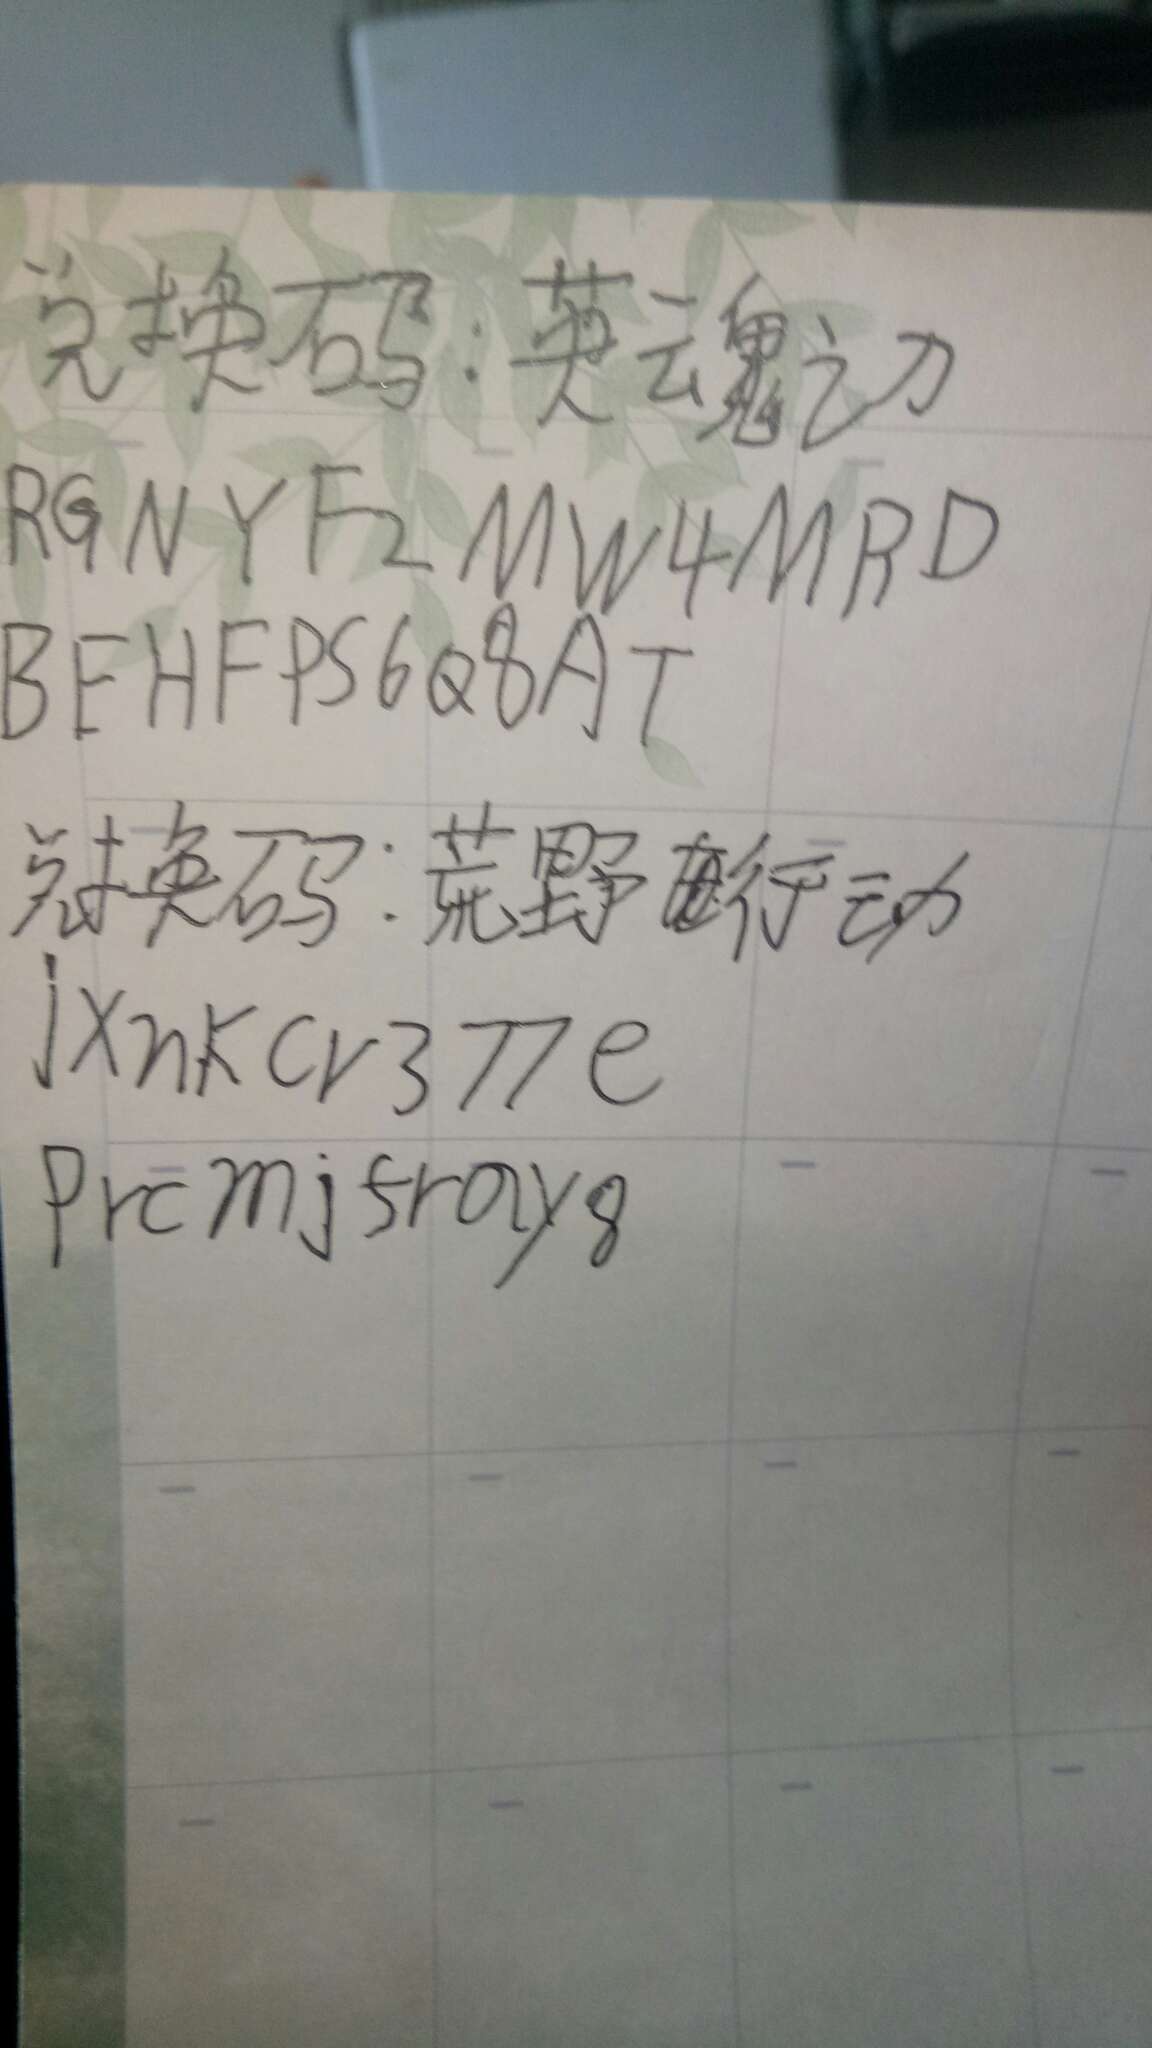 兑换码:英魂之刃
RGNYF2MW4MRD
BEHFPS6Q8AT
兑换码:荒野行动
jxnkcr377e
prcmj5rayg